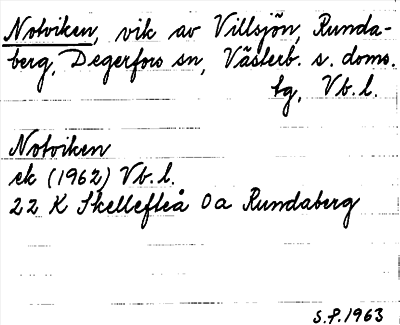 Notviken, vik av Villsjön, Runda-
berg, Degerfors sn, Västerb. s. doms.
tg, Vb. l.
Notviken
ek (1962) Vb. l.
22 K Skellefteå 0a Rundaberg
S.P. 1963